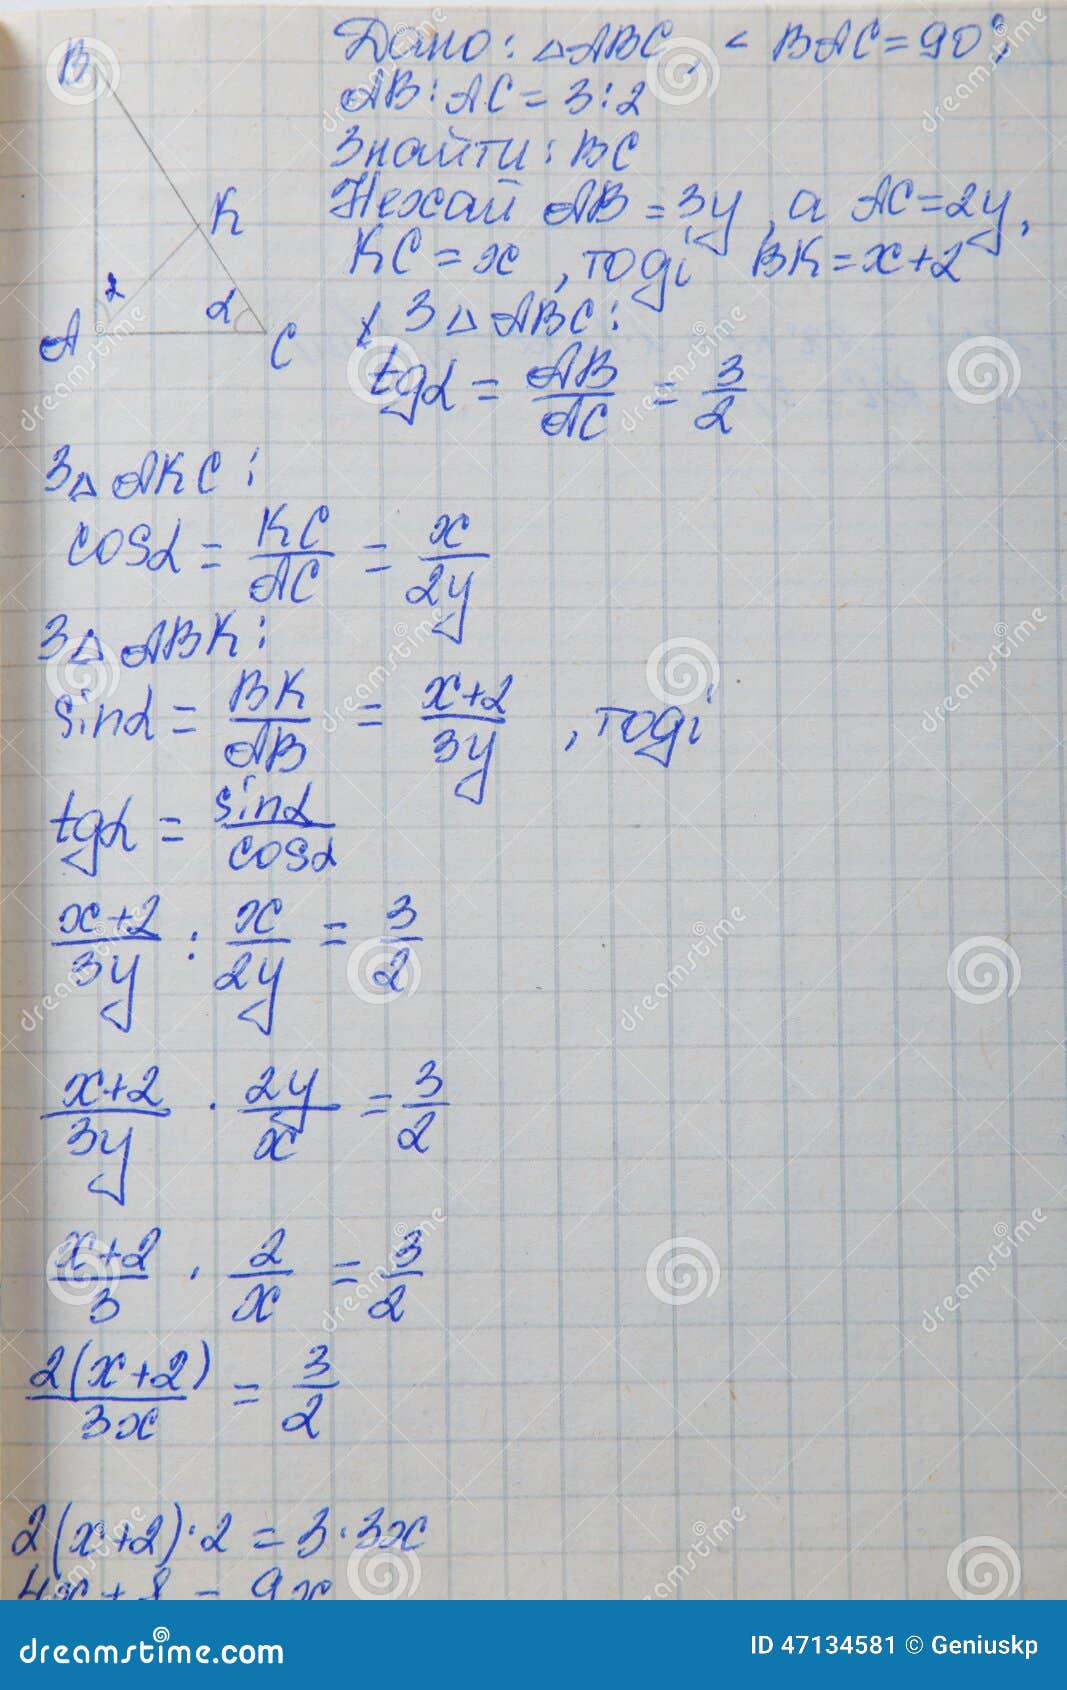 B
K
A
2
α
C
Дано: △ABC, < BAC = 90°,
AB : AC = 3 : 2
Знайти : BC
Нехай AB = 3y, а AC = 2y,
KC = x, тоді BK = x+2
З △ ABC:
tgα = AB/AC = 3/2
З △ AKC:
cosα = KC/AC = x/2y
З △ ABK:
sinα = BK/AB = x+2/3y, тоді
tgα = sinα/cosα
x+2/3y : x/2y = 3/2
x+2/3y · 2y/x = 3/2
x+2/3 · 2/x = 3/2
2(x+2)/3x = 3/2
2(x+2)·2 = 3·3x
4x + 8 = 9x
dreamstime.com
ID 47134581 © Geniuskp